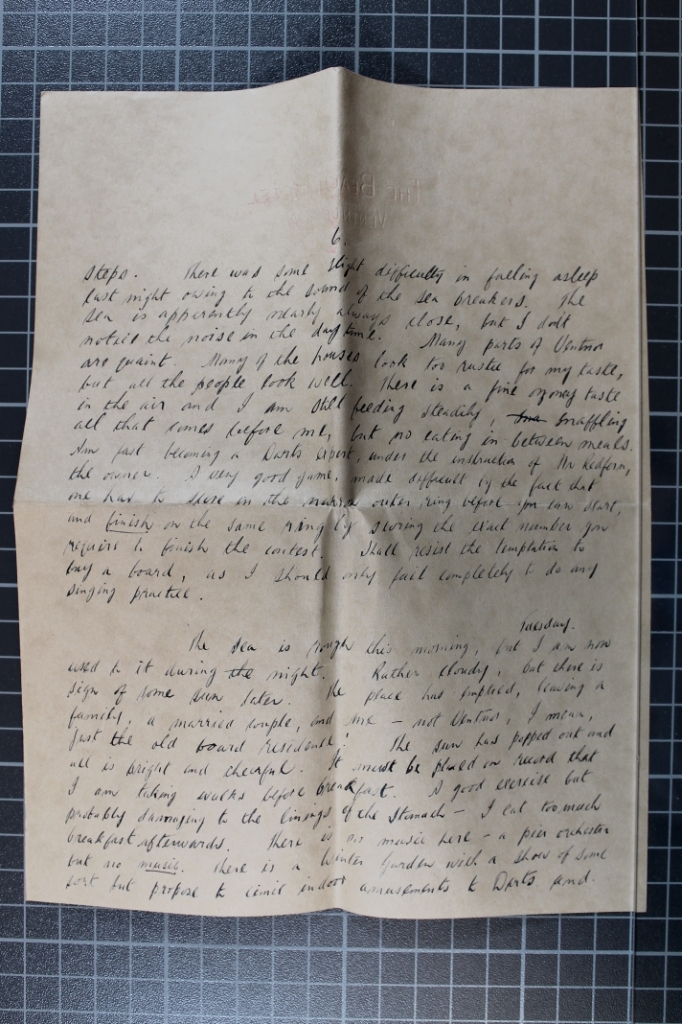 6.
steps. There was some slight difficulty in falling asleep
last night owing to the sound of the sea breakers. The
sea is apparently nearly always close, but I don't
notice the noise in the day time. Many parts of Ventnor
are quaint. Many of the houses look too rustic for my taste,
but all the people look well. There is a fine ozoney taste
in the air and I am still feeding steadily, snaffling
all that comes before me, but no eating in between meals.
Am fast becoming a Darts expert, under the instruction of Mr Redform,
the owner. A very good game, made difficult by the fact that
one has to score on the narrow outer ring before you can start,
and finish on the same ring by scoring the exact number you
require to finish the contest. Shall resist the temptation to
buy a board, as I should only fail completely to do any
singing practice.
Tuesday.
The sea is rough this morning, but I am now
used to it during the night. Rather cloudy, but there is
sign of some sun later. The place has emptied, leaving a
family, a married couple, and me – not Ventnor, I mean,
just the old board residence! The sun has popped out and
all is bright and cheerful. It must be placed on record that
I am taking walks before breakfast. A good exercise but
probably damaging to the linings of the stomach – I eat too much
breakfast afterwards. There is no music here – a pier orchester
but no music. There is a Winter Garden with a show of some
sort but propose to limit indoor amusements to Darts and.
THE BEACH HOTEL